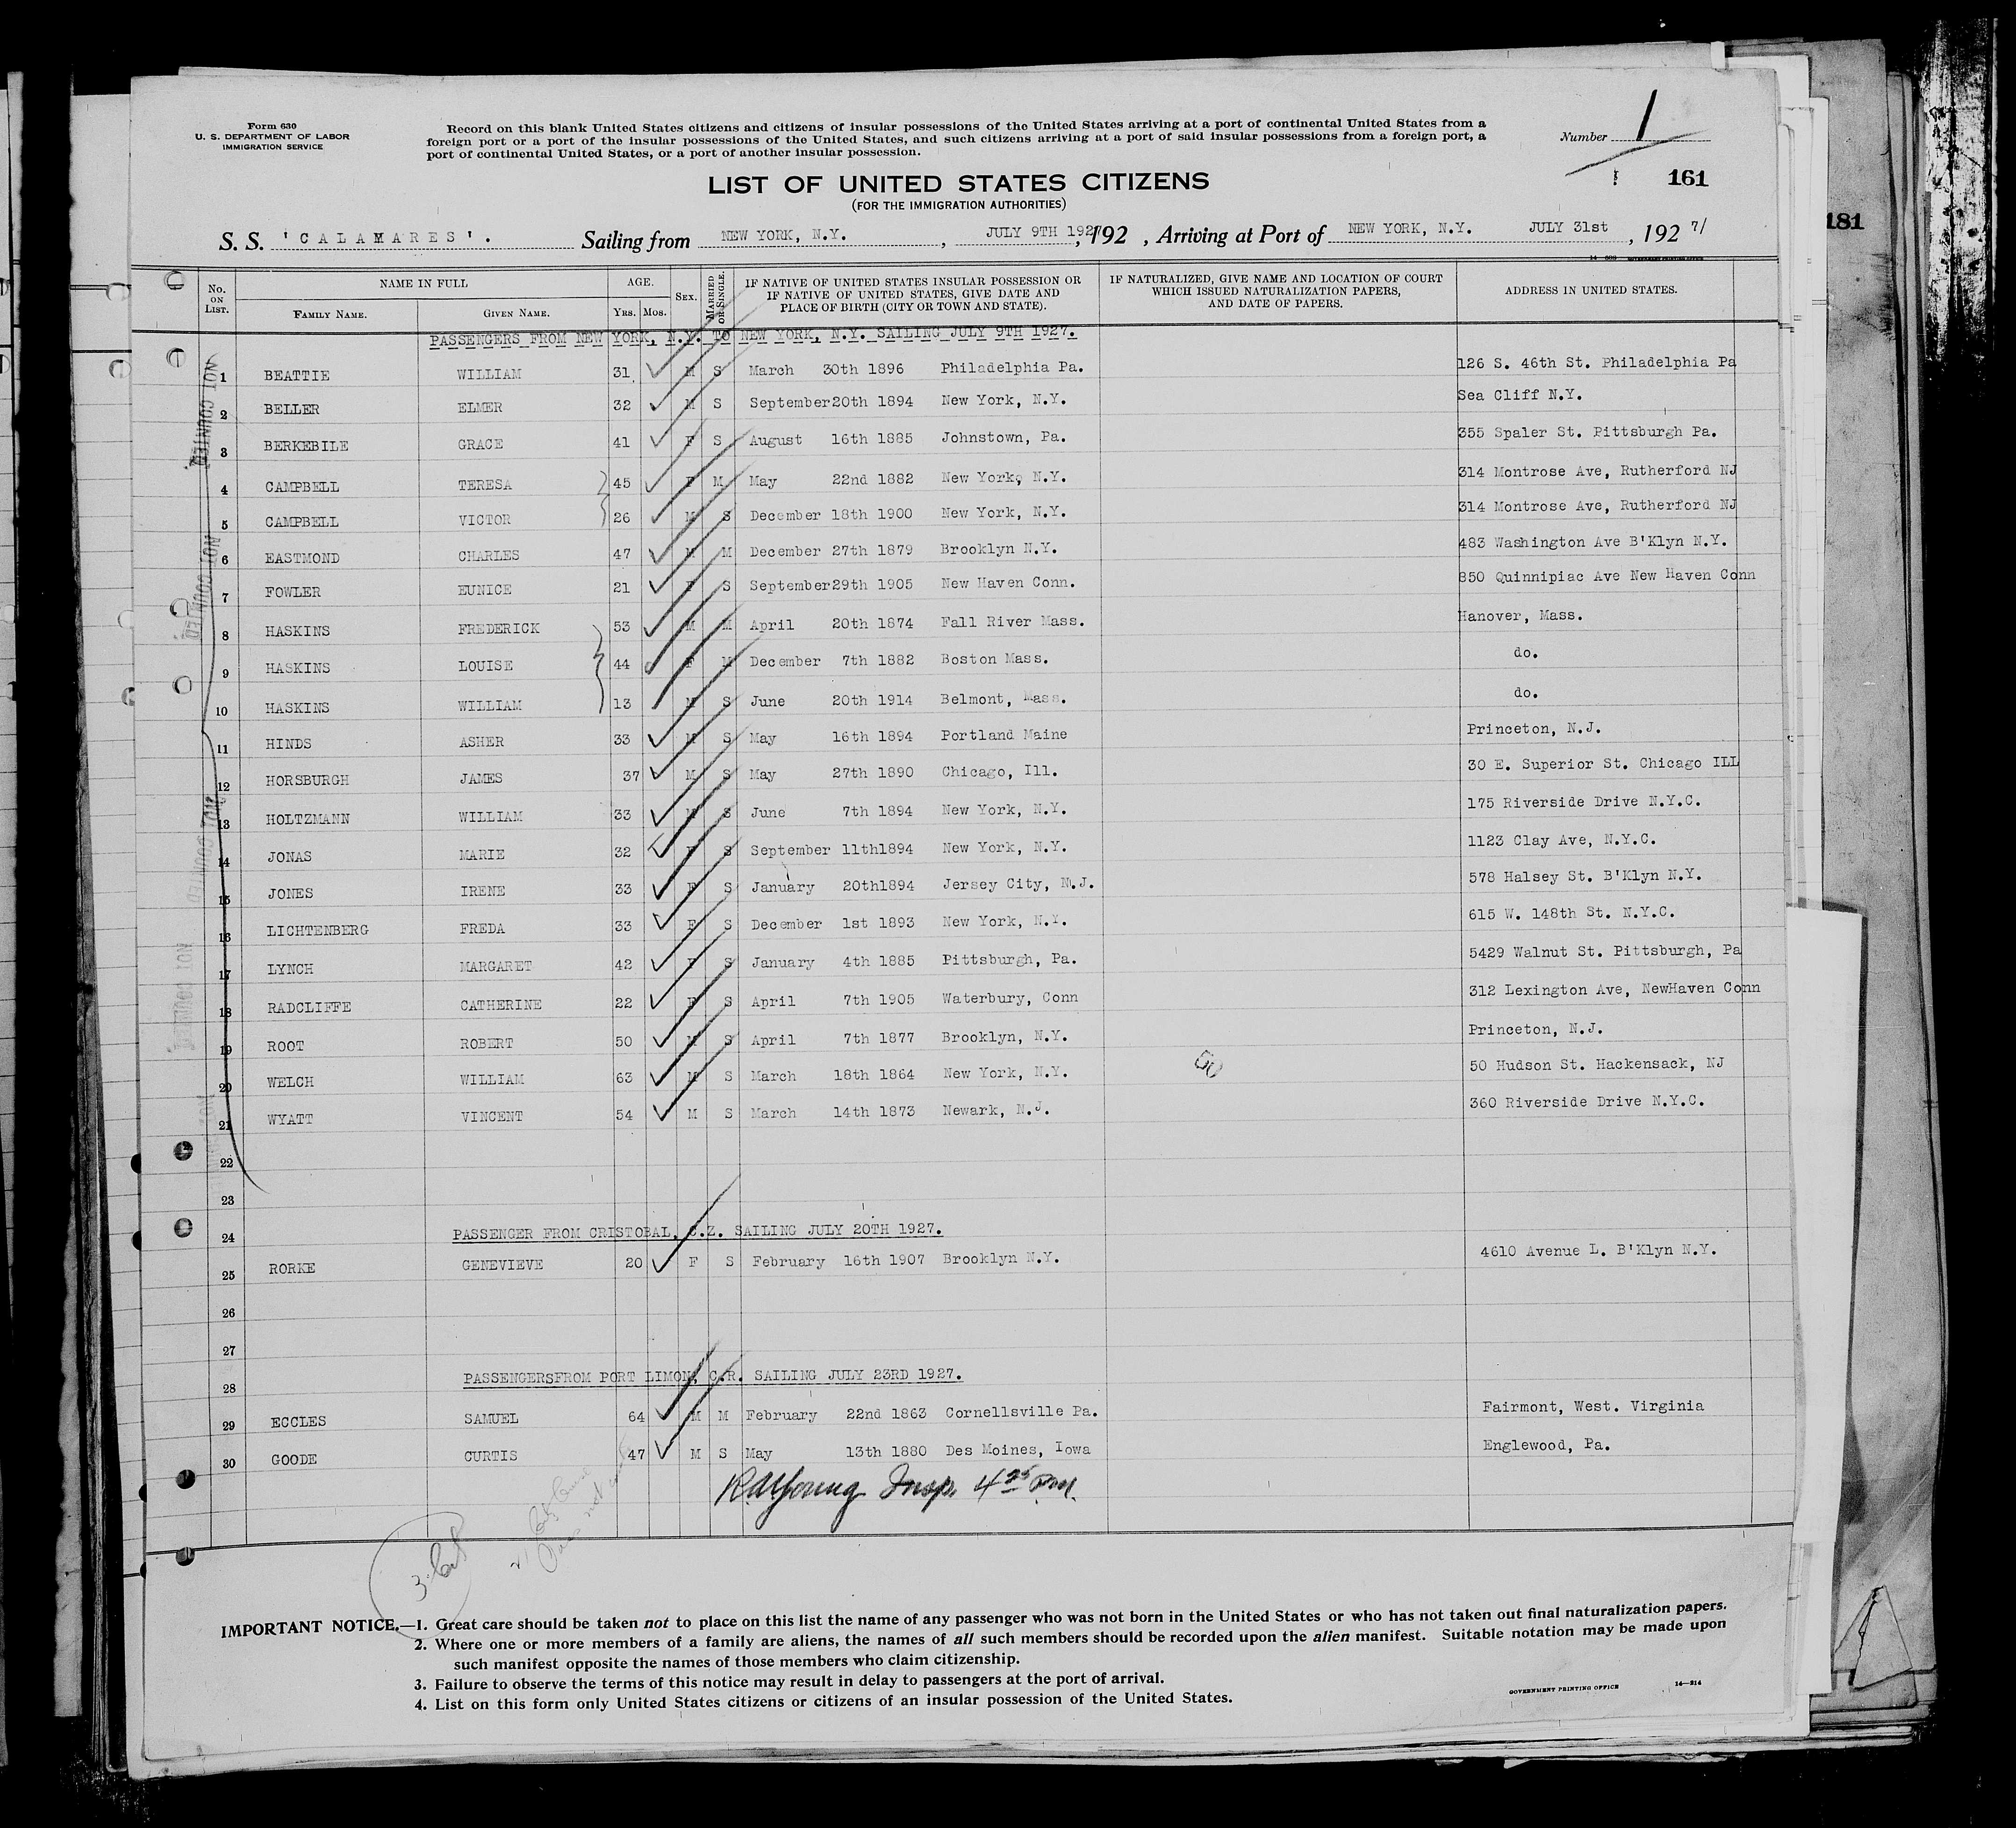 Form 630
U. S. DEPARTMENT OF LABOR
IMMIGRATION SERVICE
Record on this blank United States citizens and citizens of insular possessions of the United States arriving at a port of continental United States from a
foreign port or a port of the insular possessions of the United States, and such citizens arriving at a port of said insular possessions from a foreign port, a
port of continental United States, or a port of another insular possession.
Number 1
161
181
LIST OF UNITED STATES CITIZENS
(FOR THE IMMIGRATION AUTHORITIES)
S. S. 'CALAMARES'. Sailing from NEW YORK, N.Y. , JULY 9TH 1927, 192 , Arriving at Port of NEW YORK, N.Y. JULY 31st , 192 7/
No. ON LIST. NAME IN FULL FAMILY NAME. GIVEN NAME. AGE. YRS. MOS. SEX. MARRIED OR SINGLE. IF NATIVE OF UNITED STATES INSULAR POSSESSION OR IF NATIVE OF UNITED STATES, GIVE DATE AND PLACE OF BIRTH (CITY OR TOWN AND STATE). IF NATURALIZED, GIVE NAME AND LOCATION OF COURT WHICH ISSUED NATURALIZATION PAPERS, AND DATE OF PAPERS. ADDRESS IN UNITED STATES.
PASSENGERS FROM NEW YORK, N.Y. TO NEW YORK, N.Y. SAILING JULY 9TH 1927.
1 BEATTIE WILLIAM 31 M S March 30th 1896 Philadelphia Pa. 126 S. 46th St. Philadelphia Pa
2 BELLER ELMER 32 M S September20th 1894 New York, N.Y. Sea Cliff N.Y.
3 BERKEBILE GRACE 41 F S August 16th 1885 Johnstown, Pa. 355 Spaler St. Pittsburgh Pa.
4 CAMPBELL TERESA 45 F M May 22nd 1882 New York, N.Y. 314 Montrose Ave, Rutherford NJ
5 CAMPBELL VICTOR 26 M S December 18th 1900 New York, N.Y. 314 Montrose Ave, Rutherford NJ
6 EASTMOND CHARLES 47 M M December 27th 1879 Brooklyn N.Y. 483 Washington Ave B'Klyn N.Y.
7 FOWLER EUNICE 21 F S September29th 1905 New Haven Conn. 850 Quinnipiac Ave New Haven Conn
8 HASKINS FREDERICK 53 M M April 20th 1874 Fall River Mass. Hanover, Mass.
9 HASKINS LOUISE 44 F M December 7th 1882 Boston Mass. do.
10 HASKINS WILLIAM 13 M S June 20th 1914 Belmont, Mass. do.
11 HINDS ASHER 33 M S May 16th 1894 Portland Maine Princeton, N.J.
12 HORSBURGH JAMES 37 M S May 27th 1890 Chicago, Ill. 30 E. Superior St. Chicago ILL
13 HOLTZMANN WILLIAM 33 M S June 7th 1894 New York, N.Y. 175 Riverside Drive N.Y.C.
14 JONAS MARIE 32 F S September 11th1894 New York, N.Y. 1123 Clay Ave, N.Y.C.
15 JONES IRENE 33 F S January 20th1894 Jersey City, N.J. 578 Halsey St. B'Klyn N.Y.
16 LICHTENBERG FREDA 33 F S December 1st 1893 New York, N.Y. 615 W. 148th St. N.Y.C.
17 LYNCH MARGARET 42 F S January 4th 1885 Pittsburgh, Pa. 5429 Walnut St. Pittsburgh, Pa
18 RADCLIFFE CATHERINE 22 F S April 7th 1905 Waterbury, Conn 312 Lexington Ave, NewHaven Conn
19 ROOT ROBERT 50 M S April 7th 1877 Brooklyn, N.Y. Princeton, N.J.
20 WELCH WILLIAM 63 M S March 18th 1864 New York, N.Y. 50 Hudson St. Hackensack, NJ
21 WYATT VINCENT 54 M S March 14th 1873 Newark, N.J. 360 Riverside Drive N.Y.C.
22
23
24 PASSENGER FROM CRISTOBAL, C.Z. SAILING JULY 20TH 1927.
25 RORKE GENEVIEVE 20 F S February 16th 1907 Brooklyn N.Y. 4610 Avenue L. B'Klyn N.Y.
26
27
28 PASSENGERSFROM PORT LIMON, C.R. SAILING JULY 23RD 1927.
29 ECCLES SAMUEL 64 M M February 22nd 1863 Cornellsville Pa. Fairmont, West. Virginia
30 GOODE CURTIS 47 M S May 13th 1880 Des Moines, Iowa Englewood, Pa.
NOT COUNTED
NOT COUNTED
NOT COUNTED
NOT COUNTED
R.W.Young Insp. 4 25 P.M.
3
IMPORTANT NOTICE.—1. Great care should be taken not to place on this list the name of any passenger who was not born in the United States or who has not taken out final naturalization papers.
2. Where one or more members of a family are aliens, the names of all such members should be recorded upon the alien manifest. Suitable notation may be made upon
such manifest opposite the names of those members who claim citizenship.
3. Failure to observe the terms of this notice may result in delay to passengers at the port of arrival.
4. List on this form only United States citizens or citizens of an insular possession of the United States.
GOVERNMENT PRINTING OFFICE 14—214